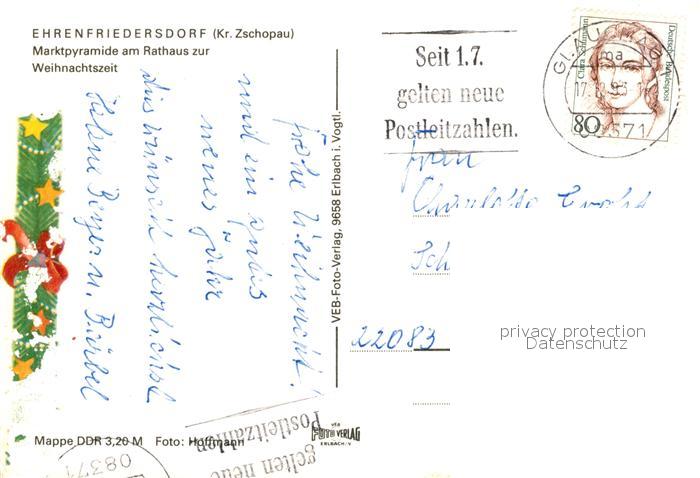 EHRENFRIEDERSDORF (Kr. Zschopau)
Marktpyramide am Rathaus zur
Weihnachtszeit
Frohe Weihnacht!
und ein gutes
neues Jahr
das wünscht herzlichst
Helene Beyer u. Bärbel
VEB-Foto-Verlag, 9658 Erlbach i. Vogtl.
Seit 1.7.
gelten neue
Postleitzahlen.
Clara Schumann
Deutsche Bundespost
80
Frau
Sch
22083
privacy protection
Datenschutz
Mappe DDR 3,20 M Foto: Hoffmann
VEB
FOTO VERLAG
ERLBACH/V
gelten neue
Postleitzahlen
08371